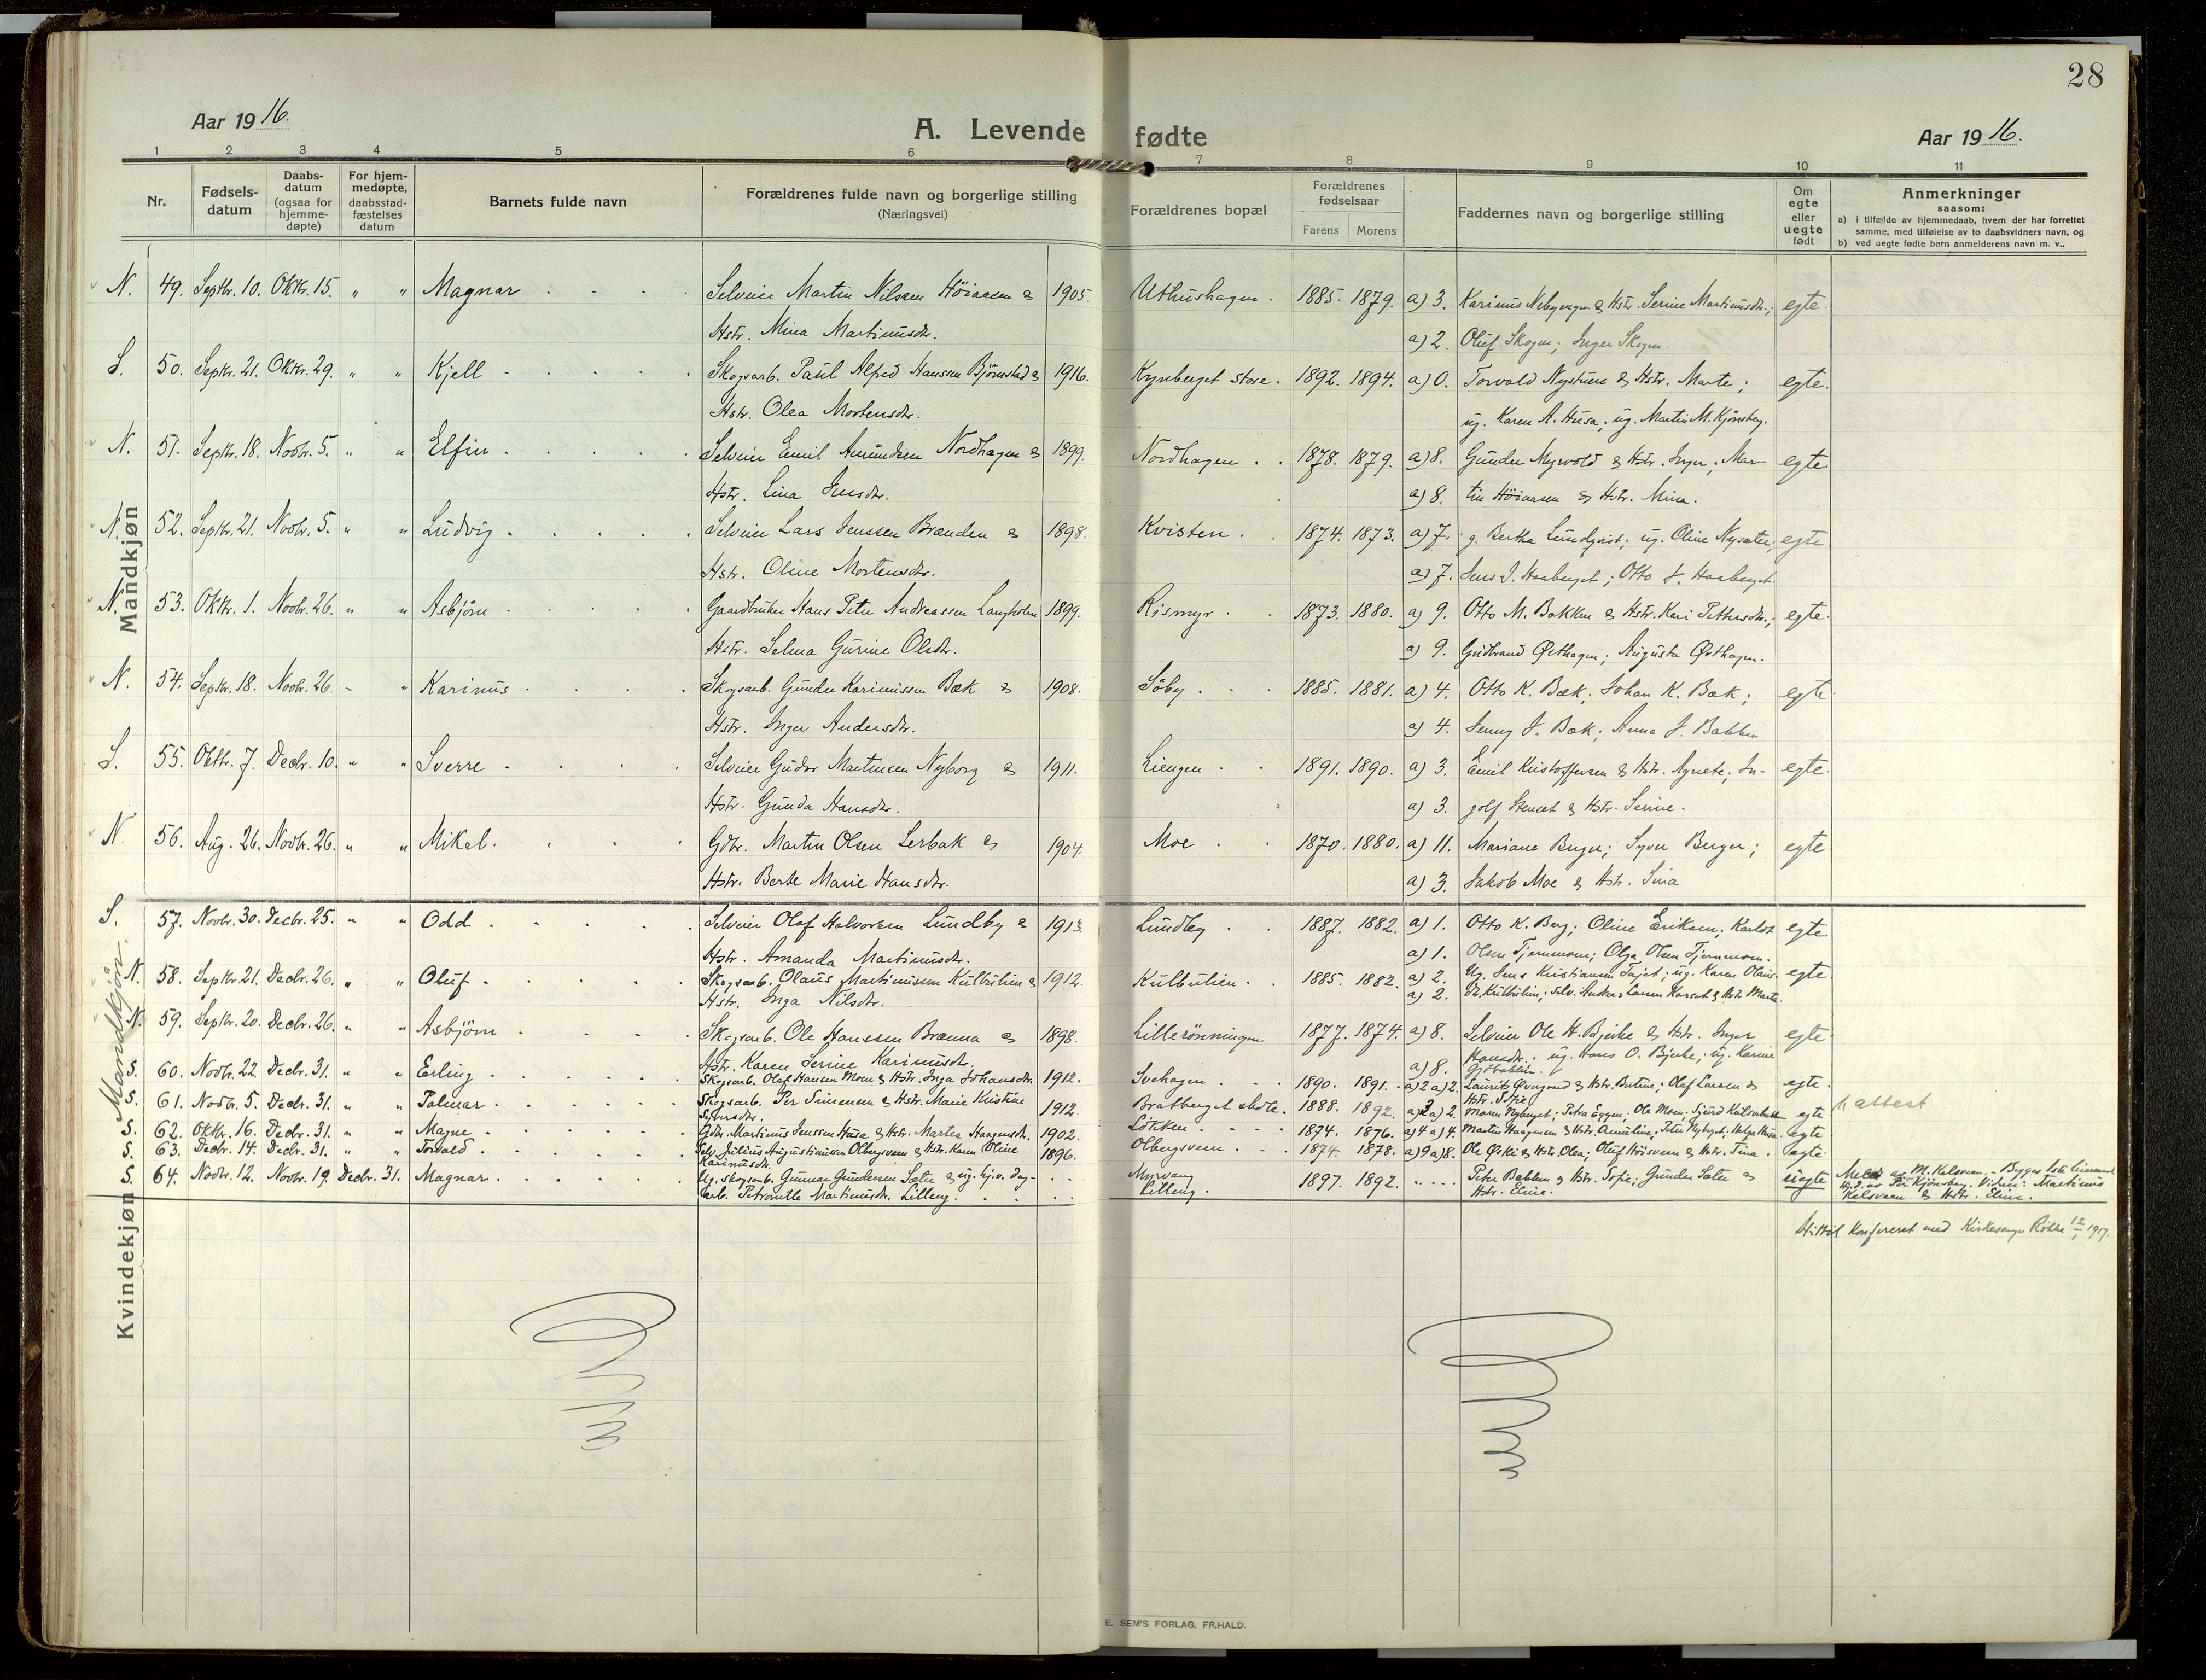 28
Aar 1916.
A. Levende fødte
Aar 1916.
1 2 3 4 5 6 7 8 9 10 11
Nr.
Fødsels-
datum
Daabs-
datum
(ogsaa for
hjemme-
døpte)
For hjem-
medøpte,
daabsstad-
fæstelses
datum
Barnets fulde navn
Forældrenes fulde navn og borgerlige stilling
(Næringsvei)
Forældrenes bopæl
Forældrenes
fødselsaar
Farens Morens
Faddernes navn og borgerlige stilling
Om
egte
eller
uegte
født
Anmerkninger
saasom:
a) i tilfælde av hjemmedaab, hvem der har forrettet
samme, med tilføielse av to daabsvidners navn, og
b) ved uegte fødte barn anmelderens navn m. v..
Mandkjøn
N. 49. Septbr. 10. Oktbr. 15. " " Magnar Selveier Martin Nilssen Höiaasen & 1905. Uthushagen. 1885. 1879. a) 3. Karinus Nebyengen & Hstr. Serine Martinusdtr.; egte.
Hstr. Mina Martinusdtr. a) 2. Oluf Skogen; Inger Skogen.
S. 50. Septbr. 21. Oktbr. 29. " " Kjell Skogsarb. Paul Alfred Hanssen Bjørnstad & 1916. Kynberget store. 1892. 1894. a) 0. Torvald Nystuen & Hstr. Marte; egte.
Hstr. Olea Mortensdtr. ug. Karen A. Husa; ug. Martin M. Kjönsberg.
N. 51. Septbr. 18. Novbr. 5. " " Elfin Selveier Emil Amundsen Nordhagen & 1899. Nordhagen. 1878. 1879. a) 8. Gunder Myrvold & Hstr. Inger; Mar- egte.
Hstr. Lina Jensdtr. a) 8. tin Höiaasen & Hstr. Mina.
N. 52. Septbr. 21. Novbr. 5. " " Ludvig Selveier Lars Jenssen Brænden & 1898. Kvisten. 1874. 1873. a) 7. g. Bertha Lundqvist; ug. Oline Nysæter; egte
Hstr. Oline Mortensdtr. a) 7. Jens J. Haaberget; Otto J. Haaberget.
N. 53. Oktbr. 1. Novbr. 26. " " Asbjörn Gaardbruker Hans Peter Andreassen Langholen 1899. Rismyr. 1873. 1880. a) 9. Otto M. Bakken & Hstr. Kari Pettersdtr.; egte.
Hstr. Selma Gurine Olsdtr. a) 9. Gudbrand Østhagen; Augusta Østhagen.
N. 54. Septbr. 18. Novbr. 26. " " Karinus Skogsarb. Gunder Karinussen Bæk & 1908. Söby. 1885. 1881. a) 4. Otto K. Bæk; Johan K. Bæk; egte.
Hstr. Inger Andersdtr. a) 4. Jenny J. Bæk; Anna J. Bakken
S. 55. Oktbr. 7. Decbr. 10. " " Sverre Selveier Gudor Martinsen Nyborg & 1911. Liengen. 1891. 1890. a) 3. Emil Kristoffersen & Hstr. Agnete; In- egte.
Hstr. Gunda Hansdtr. a) 3. golf Stenset & Hstr. Serine.
N. 56. Aug. 26. Novbr. 26. " " Mikal. Gdbr. Martin Olsen Lerbak & 1904. Moe 1870. 1880. a) 11. Mariane Berger; Syver Berger; egte.
Hstr. Berte Marie Hansdtr. a) 3. Jakob Moe & Hstr. Sina
Mandkjön
S. 57. Novbr. 30. Decbr. 25. " " Odd Selveier Olaf Halvorsen Lundby & 1913. Lundby 1887. 1882. a) 1. Otto K. Berg; Oline Eriksen; Karlot egte.
Hstr. Amanda Martinusdtr. a) 1. Olsen Tjernmoen; Olga Olsen Tjernmoen.
N. 58. Septbr. 21. Decbr. 26. " " Oluf Skogsarb. Olaus Martinussen Kulbulien & 1912. Kulbulien. 1885. 1882. a) 2. Ug. Jens Kristiansen Tajet; ug. Karen Olaus- egte
Hstr. Inga Nilsdtr. a) 2. dtr. Kulbulien; selv. Andreas Larsen & Hstr. Marte.
N. 59. Septbr. 20. Decbr. 26. " " Asbjörn Skogsarb. Ole Hanssen Brænna & 1898. Lillerönningen. 1877. 1874. a) 8. Selveier Ole H. Bjerke & Hstr. Inger egte.
Hstr. Karen Serine Karinusdtr. a) 8. Hansdtr.; ug. Hans O. Bjerke; ug. Karine
S. 60. Novbr. 22. Decbr. 31. " " Erling Skogsarb. Olaf Hansen Moen & Hstr. Inga Johansdtr. 1912. Svehagen. 1890. 1891. a) 2 a) 2. Laurits & Hstr. Betine; Olaf Larsen & egte.
Hstr. Sofie
S. 61. Novbr. 5. Decbr. 31. " " Palmar Skogsarb. Per Simensen & Hstr. Marie Kristine 1912. Bratberget 1888. 1892. a) 2 a) 2. Maren Nyberget; Petra Eggen; Ole Moen; Sjurd egte attest
S. 62. Oktbr. 16. Decbr. 31. " " Magne Gdbr. Martinus Jenssen Husa & Hstr. Martea Haagensdtr. 1902. Lökken 1874. 1876. a) 4 a) 4. Martin Haagensen & Hstr. Amüline; Peter Nyberget; Helga Husa. egte
S. 63. Decbr. 14. Decbr. 31. " " Torvald Selv. Julius Augustinussen Olbergsveen & Hstr. Karen Oline 1896. Olbergsveen 1874. 1878. a) 9 a) 8. Ole & Hstr. Olea; Oluf Höisveen & Hstr. Tina. egte.
Karinusdtr.
S. 64. Novbr. 12. Novbr. 19. Decbr. 31. Magnar Ug. skogsarb. Gunnar Gundersen Sæter & ug. hjv. dag- Myrvang 1897. 1892. Peter Bakken & Hstr. Sofie; Gunder Sæter & uegte
arb. Petronille Martinusdtr. Lilleng. Lilleng. Hstr. Eline.
Meldt av M. Kalsveen.
H. d. av Per Kjönsberg. Vidner: Martinus
Kalsveen & Hstr. Eline.
Hittil konfereret med Kirkesanger 12/1 1917.
Kvindekjøn
E. SEM'S FORLAG, FR.HALD.